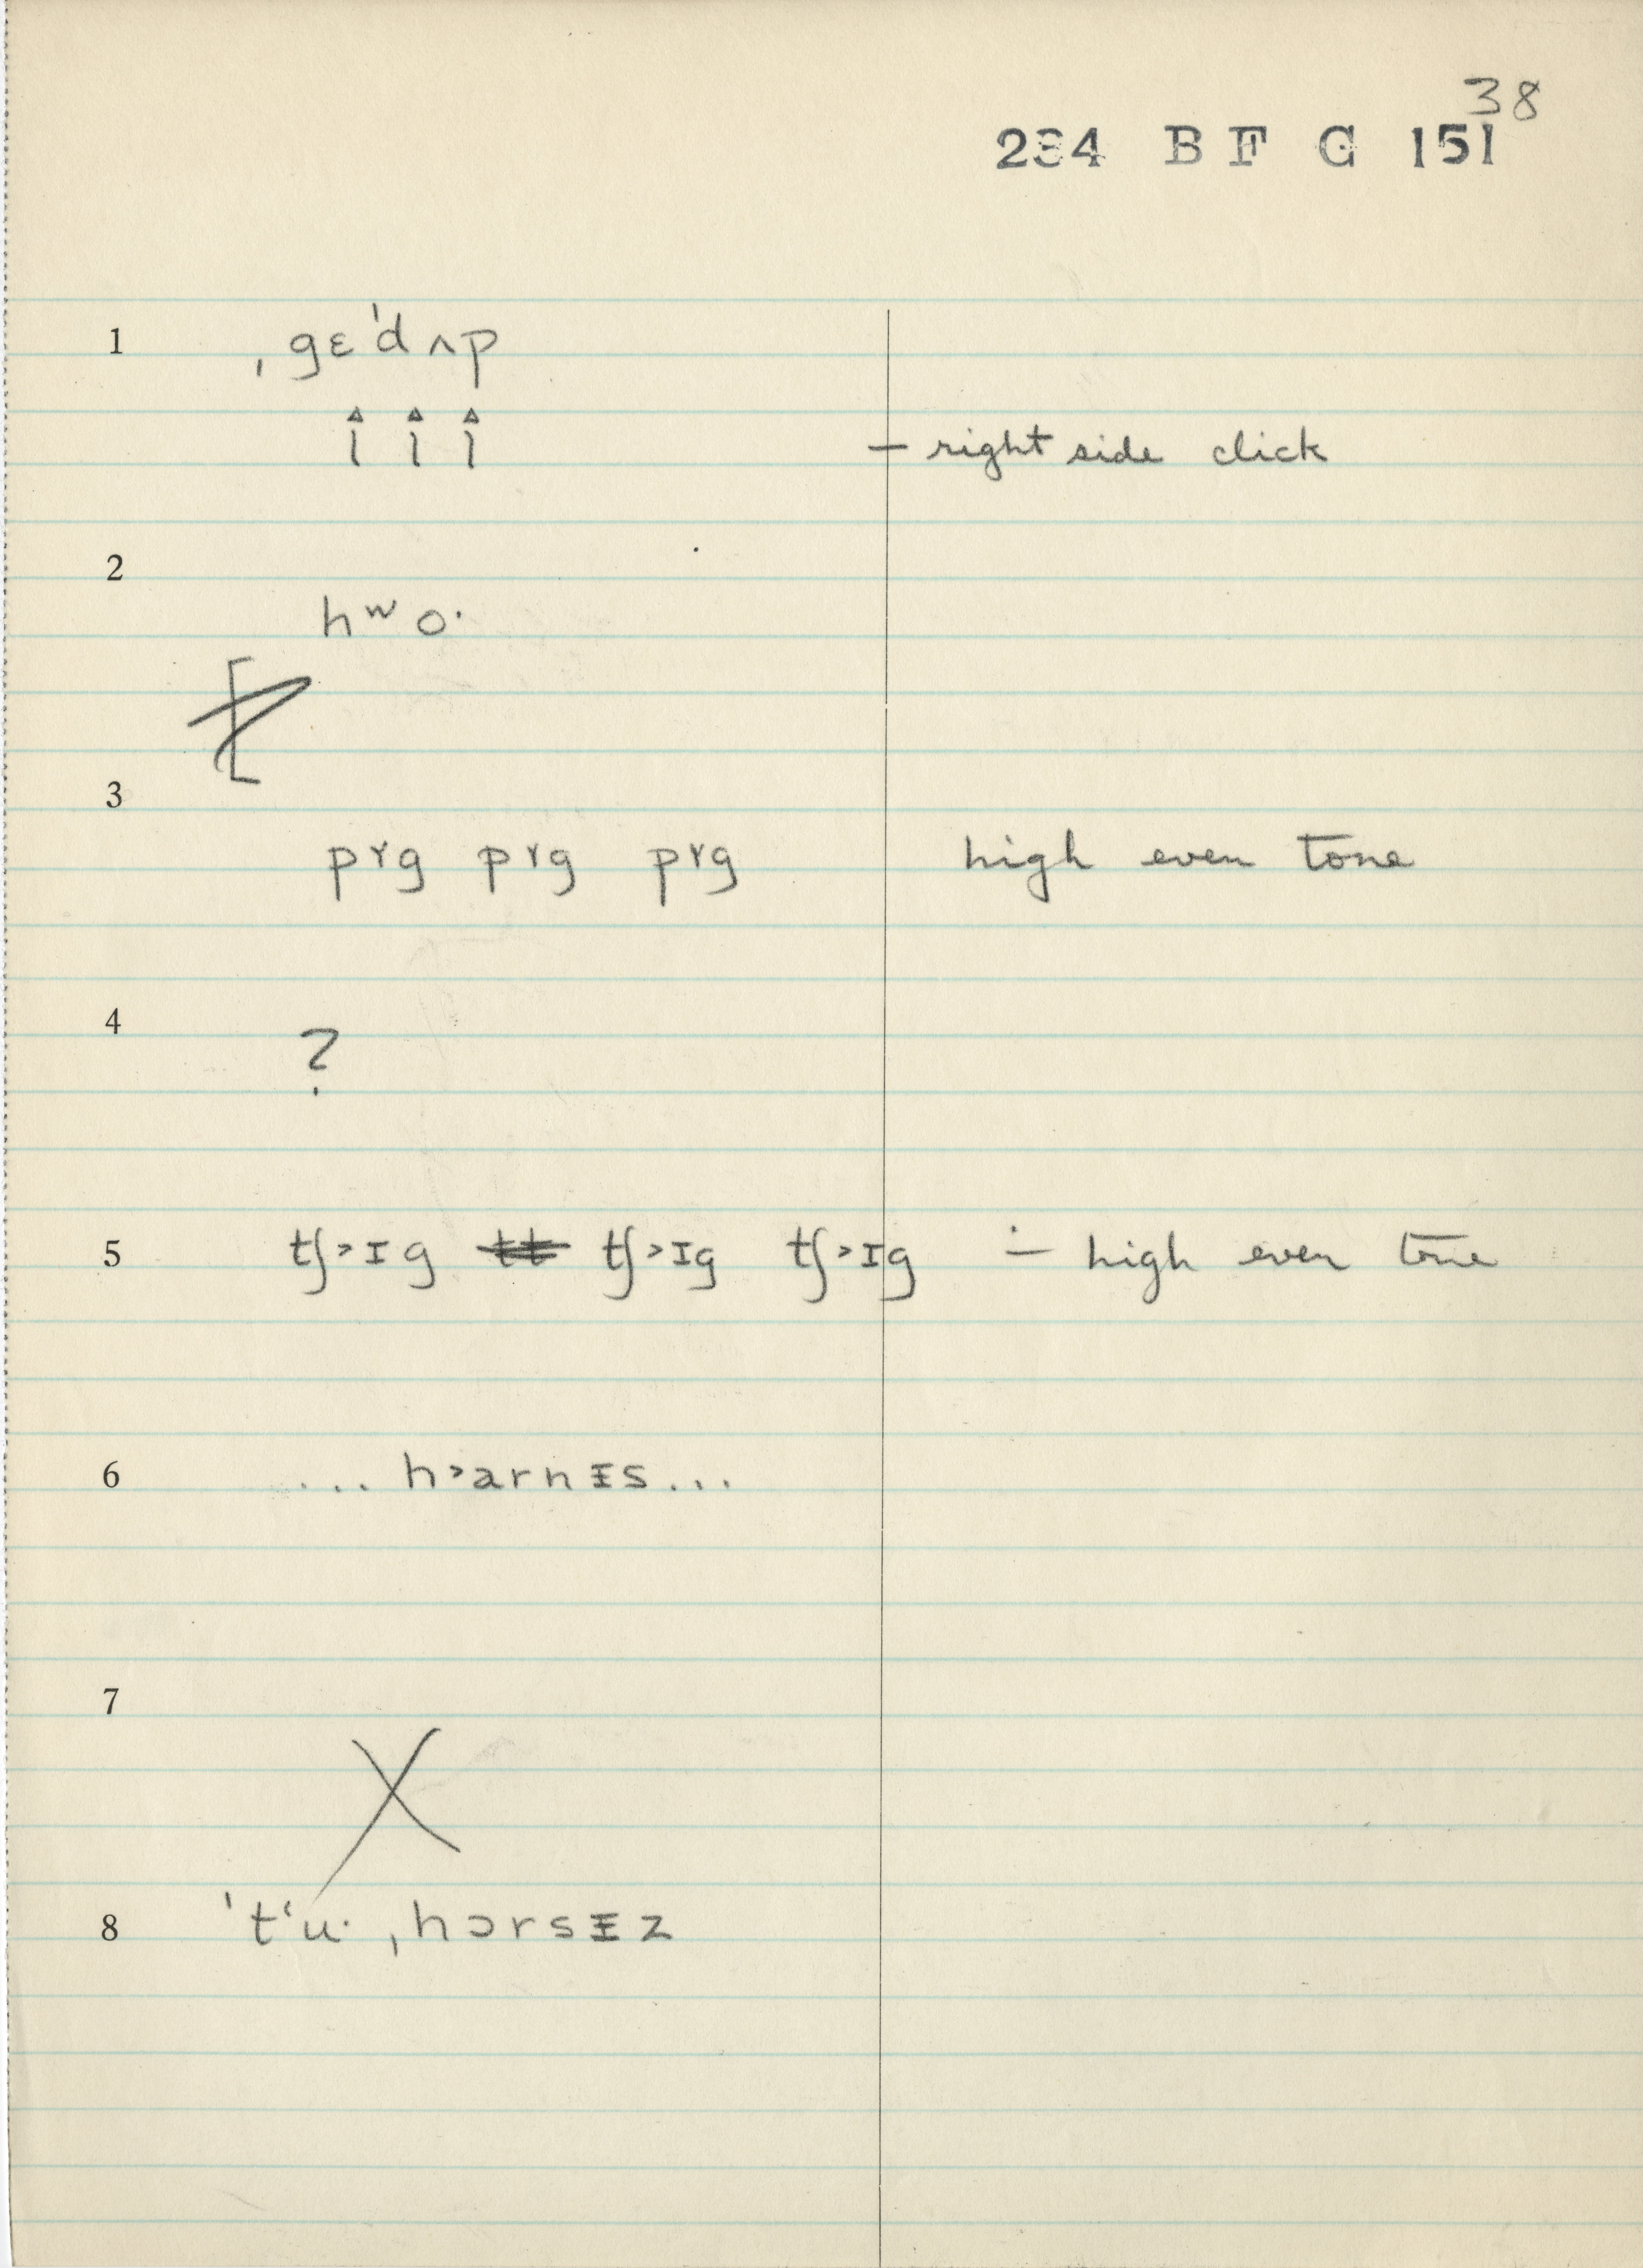 38
234 B F G 151
1 ˌgɛˈdʌp
— right side click
2
hʷo·
3
pɤg pɤg pɤg high even tone
4
?
5 tʃ˃ɪg tʃ˃ɪg tʃ˃ɪg ∸ high even tone
6 ... h˃arnᵻs...
7
8 ˈtʻu· ˌhɔrsᵻz